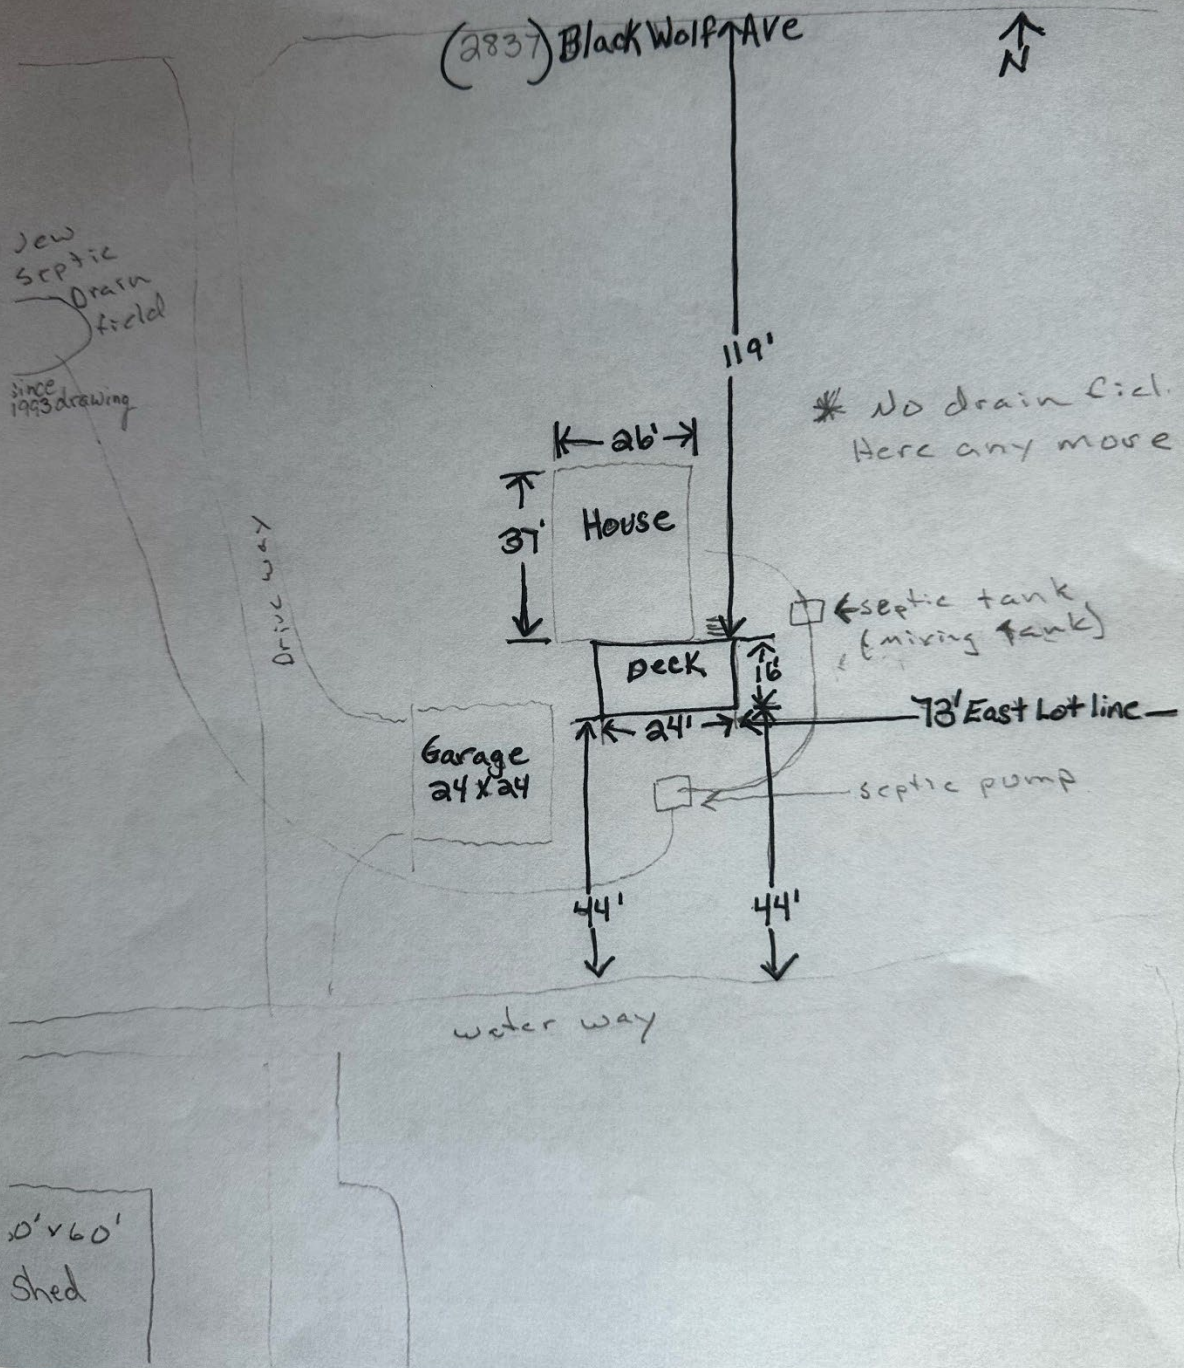 (2837) Black Wolf Ave
N
Jew
Septic
Drain
field
since
1993 drawing
119'
* No drain fiel.
Here any more
26'
37'
House
Drive way
septic tank
(mixing tank)
Deck
16'
73' East Lot line
24'
Garage
24 x 24
septic pump
44'
44'
water way
0' x 60'
Shed